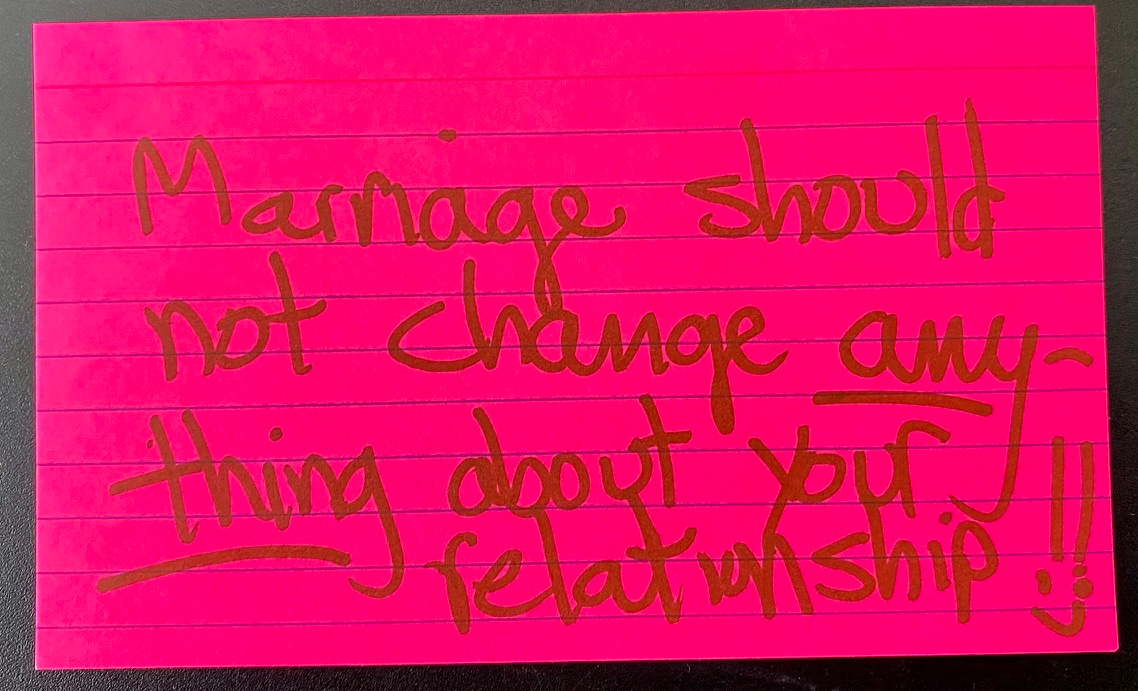 Marriage should
not change any-
thing about your
relationship!!